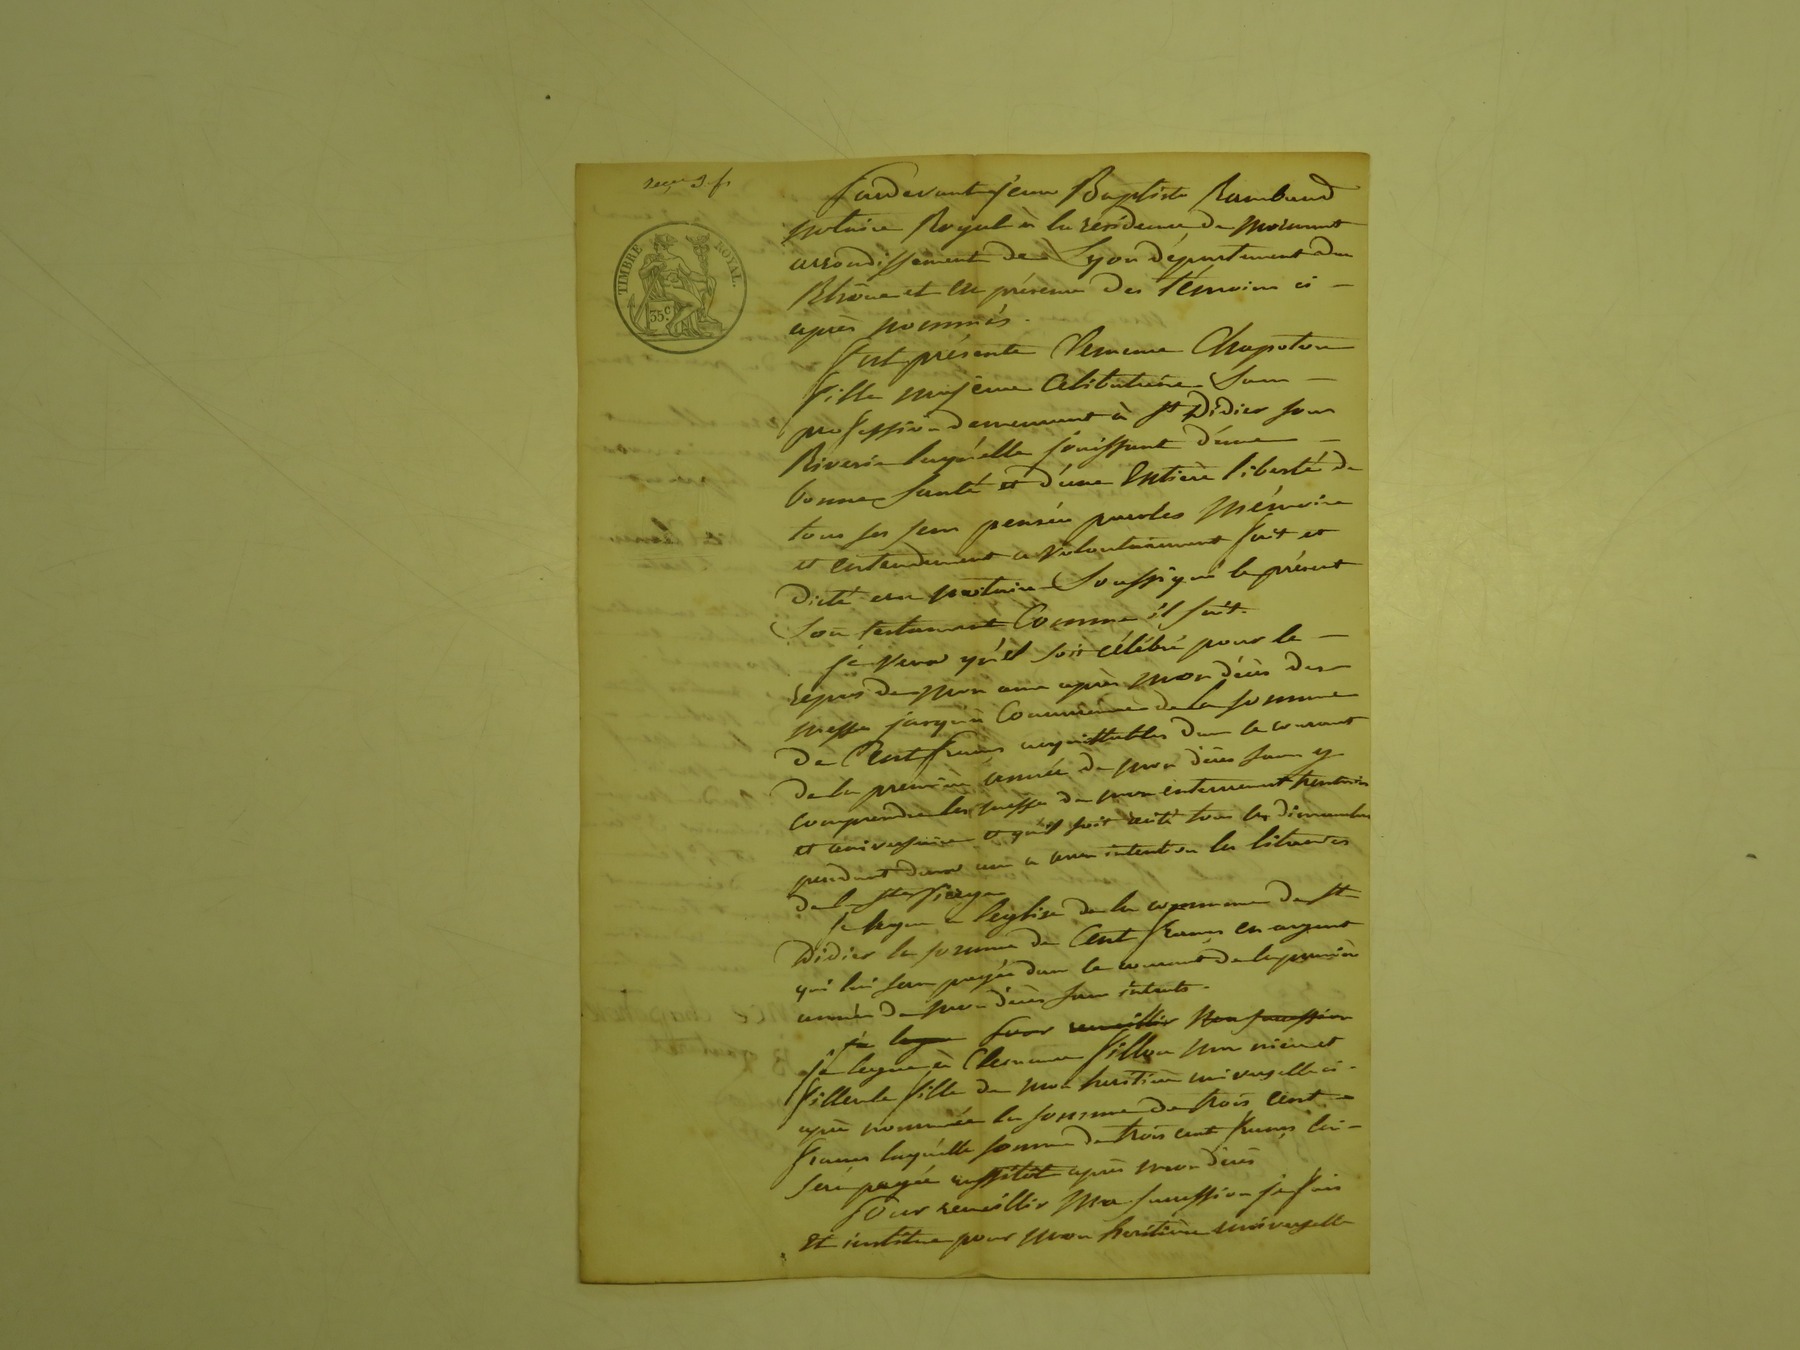 reçu 3 fr
TIMBRE ROYAL.
35 c
Pardevant Jean Baptiste Rambaud
notaire Royal à la résidence de mornant
arrondissement de Lyon département du
Rhône et en présence des témoins ci –
après nommés.
fut présente Clemence Chapoton
fille majeure Célibataire Sans –
profession demeurant à St Didier sous
Riverie laquelle jouissant d'une –
bonne Santé et d'une Entière liberté de
tous ses sens pensée paroles Mémoire
et entendement a volontairement fait et
Dicté au notaire Soussigné le présent
Son testament Comme il suit.
je veux qu'il soit célébré pour le –
repos de mon ame après mon décès des
messe jusqu'à Concurrence de la somme
de Cent francs acquittables dans le courant
de la première année de mon décès sans y
comprendre les messe de mon enterrement trentain
et aniversaire et qu'il soit récité tous les dimanches
pendant deux ans a mon intention les litanies
de la Ste Vierge
je legue a l'eglise de la commune de St
Didier la somme de Cent francs en argent
qui lui sera payée dans le courant de la première
année de mon décès sans intérêts.
je legue Pour recueillir Ma succession
je legue à Clemence fillon ma niece et
filleule fille de mon héritière universelle ci-
après nommée la somme de trois Cent
francs laquelle somme de trois cent francs lui –
sera payée aussitôt après mon décès
Pour recueillir Ma succession je fais
Et institue pour mon héritière universelle